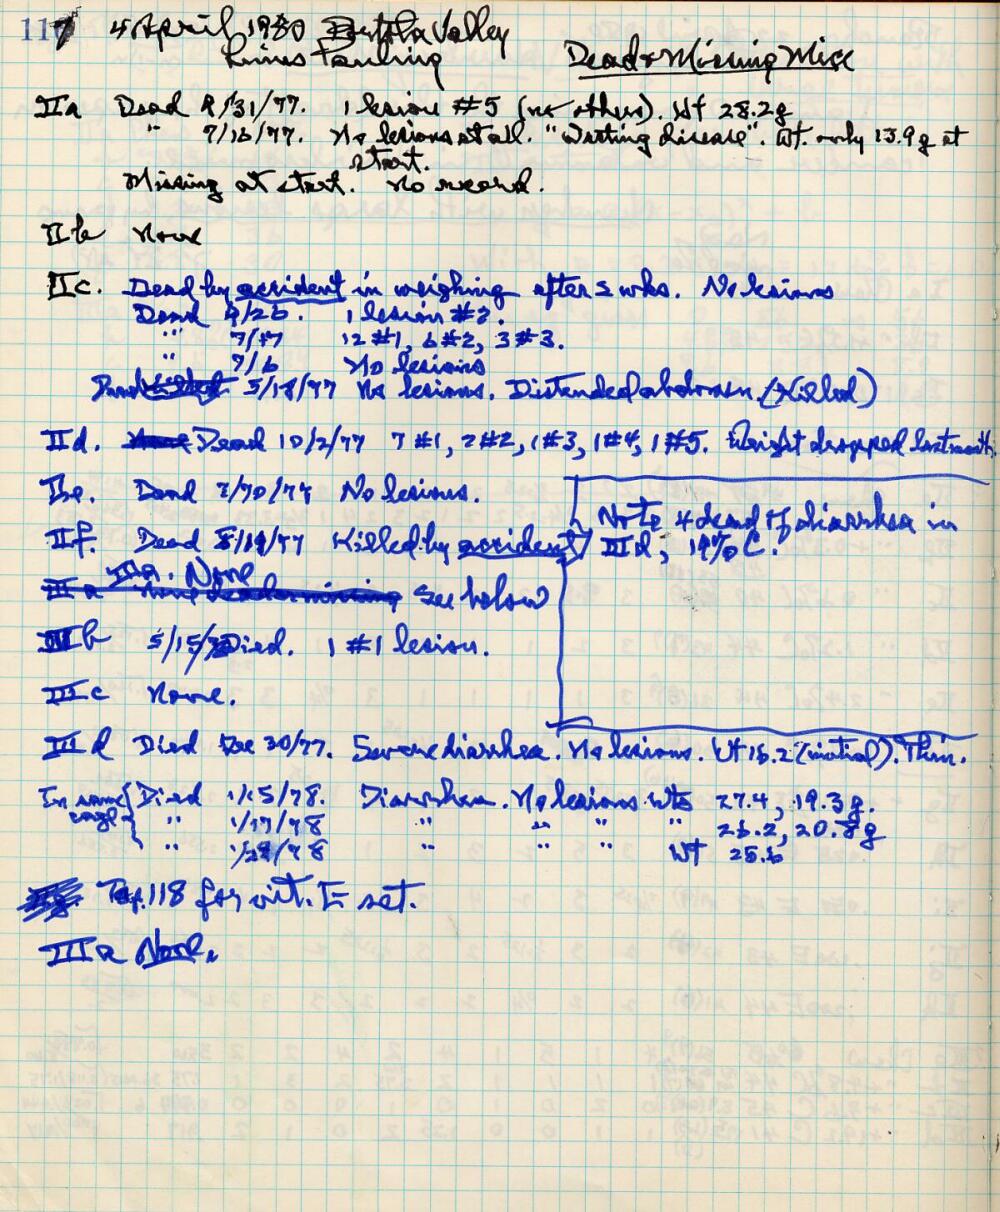 117 4 April 1980 Valley
Linus Pauling Dead & Missing Mice
IIa Dead 8/31/77. 1 lesion #5 (no others). Wt 28.2g
" 9/16/77. No lesions at all. "Wasting disease". Wt. only 13.9g at
start.
Missing at start. No record.
IIb None
IIc. Dead by accident in weighing after 2 wks. No lesions
Dead 9/26. 1 lesion #2.
" 12 #1, 6 #2, 3 #3.
" 9/6 No lesions
5/18/77 No lesions. Distended abdomen. (Killed)
IId. Dead 10/2/77 7 #1, 2 #2, 1 #3, 1 #4, 1 #5. Weight dropped last month.
IIe. Dead No lesions.
Note 4 dead of diarrhea in
IIId, C.
IIf. Dead 8/19/77 Killed by accident
IIIa. None
See below
IIIb 5/15/ Died. 1 #1 lesion.
IIIc None.
IIId Died Dec 30/77. Severe diarrhea. No lesions. Wt 16.2 (initial). Thin.
In same cage { Died 1/15/78. Diarrhea. No lesions Wts 27.4, 19.3g.
" 1/17/78 " " " " 26.2, 20.8g
" 1/28/78 " " " Wt 25.6
To p. 118 for vit. E set.
IIIa None.